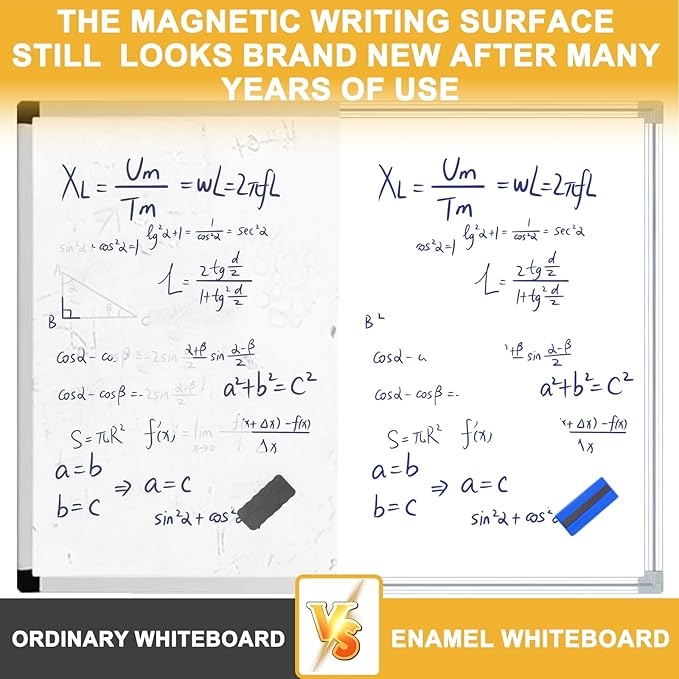 THE MAGNETIC WRITING SURFACE
STILL LOOKS BRAND NEW AFTER MANY
YEARS OF USE
X_L = Um/Tm = wL=2πfL
lg²2+1 = 1/cos²2 = sec²2
sin²2 + cos²2=1
L = 2tg d/2 / 1+tg² d/2
A
2
B
β
C
cosd - cosβ = -2sin 2+β/2 sin 2-β/2
cosd - cosβ = -2sin 2+β/2
a²+b²=c²
S=πR² f'(x) = lim x→0 f(x+Δx) - f(x)/Δx
a=b
b=c ⇒ a=c
sin²2 + cos²2
X_L = Um/Tm = wL=2πfL
lg²2+1 = 1/cos²2 = sec²2
cos²2=1
L = 2tg d/2 / 1+tg² d/2
B ²
cosd - +β/2 sin 2-β/2
cosd - cosβ =-
a²+b²=c²
S=πR² f'(x) x+Δx) - f(x)/Δx
a=b
b=c ⇒ a=c
sin²2 + cos²
ORDINARY WHITEBOARD
VS
ENAMEL WHITEBOARD